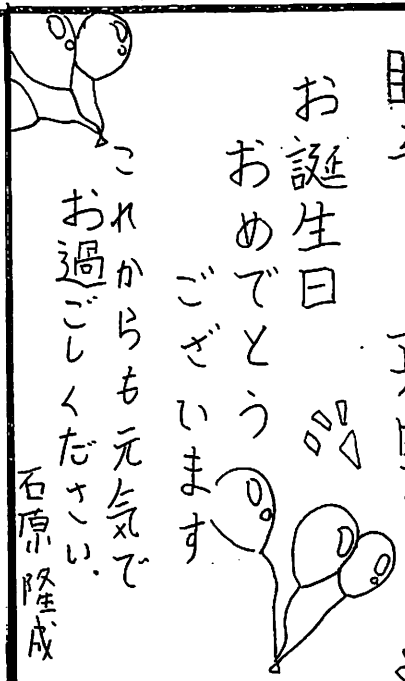 お誕生日
おめでとう
ございます
これからも元気で
お過ごしください.
石原 隆成